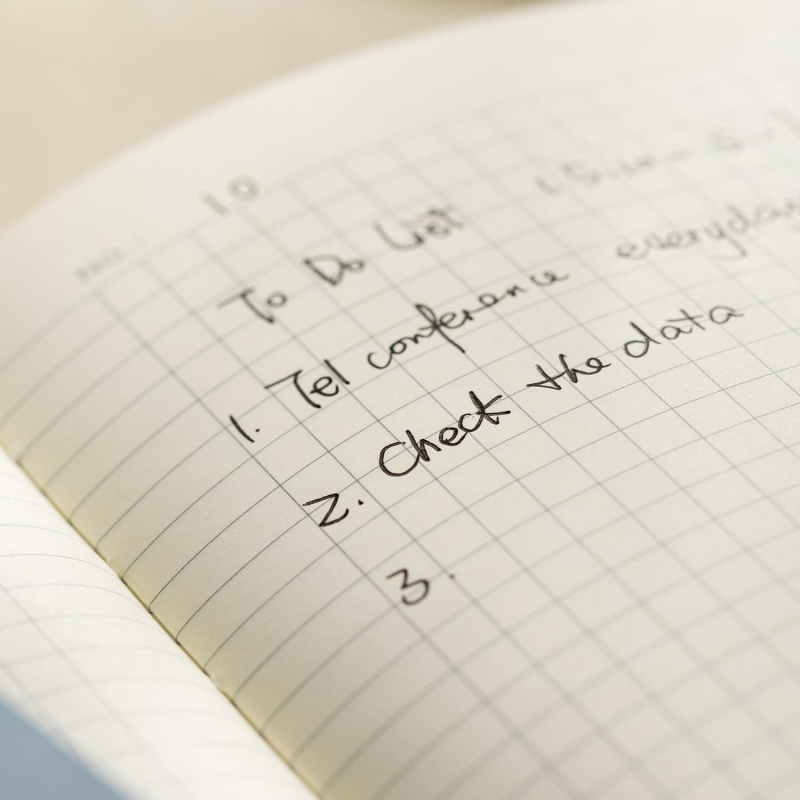 NO. 10
To Do List
1. Tel conference everyday
2. Check the data
3.